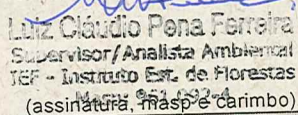 Luiz Cláudio Pena Ferreira
Supervisor/Analista Ambiental
IEF - Instituto Est. de Florestas
Masp: 951.092-4
(assinatura, masp e carimbo)